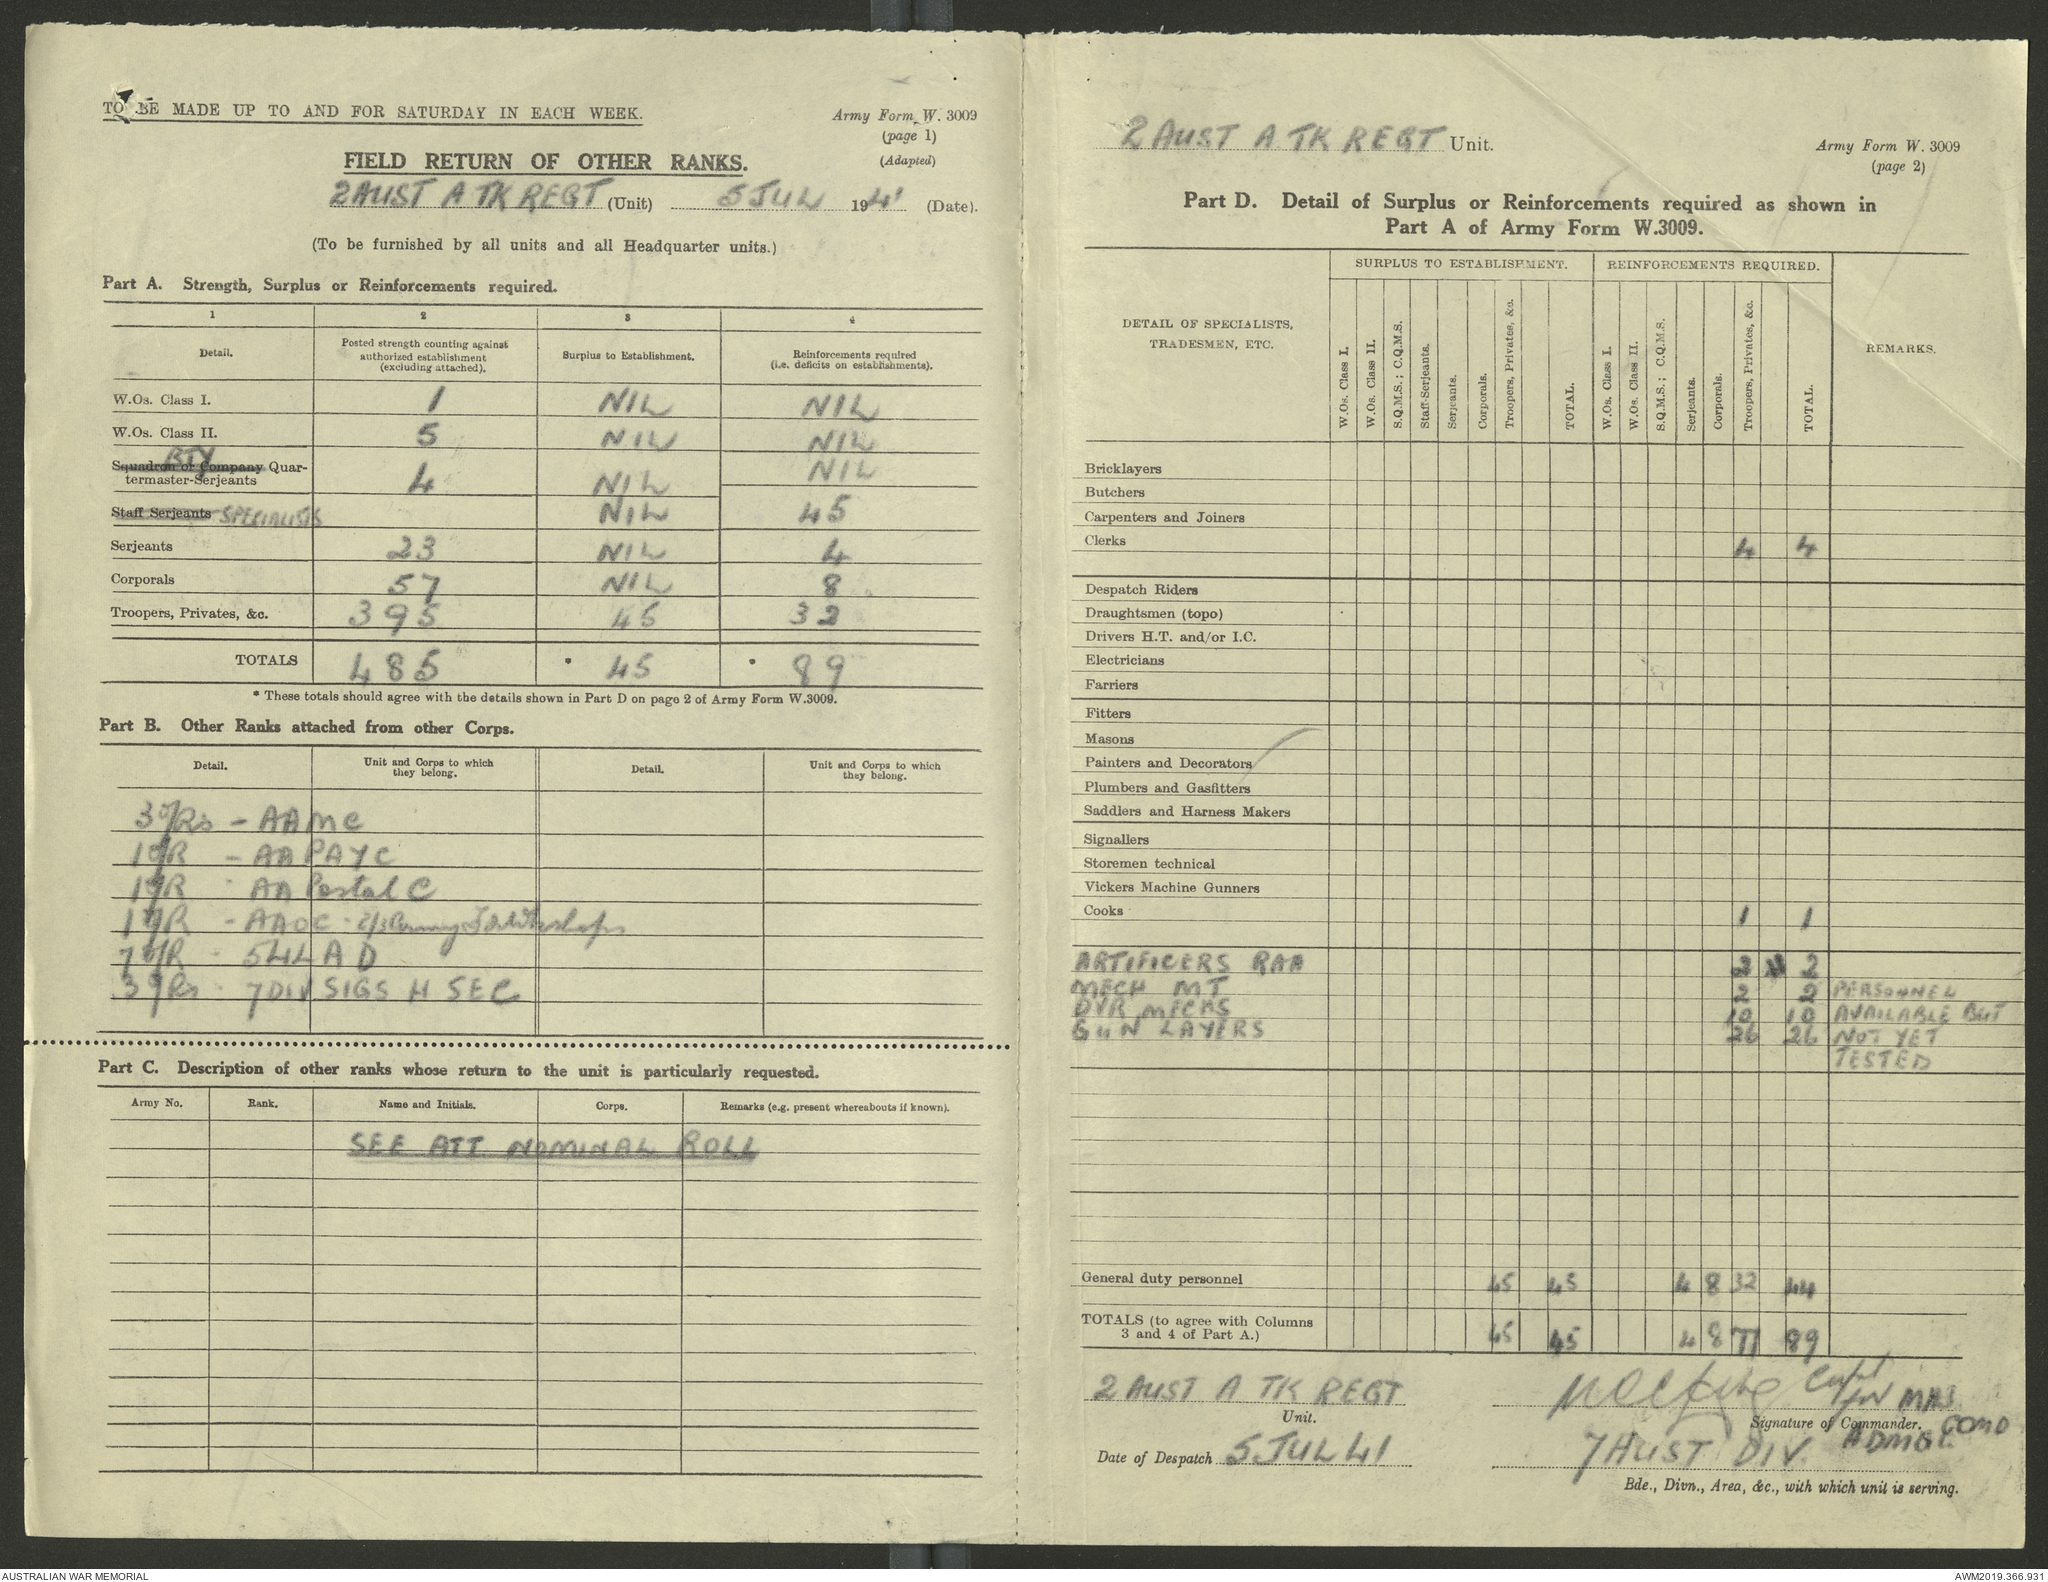 TO BE MADE UP TO AND FOR SATURDAY IN EACH WEEK.
Army Form W. 3009
(page 1)
(Adapted)
FIELD RETURN OF OTHER RANKS.
2 AUST A TK REGT (Unit) 5 JUL 1941 (Date).
(To be furnished by all units and all Headquarter units.)
Part A. Strength, Surplus or Reinforcements required.
1 2 3 4
Detail. Posted strength counting against authorized establishment (excluding attached). Surplus to Establishment. Reinforcements required (i.e. deficits on establishments).
W.Os. Class I. 1 NIL NIL
W.Os. Class II. 5 NIL NIL
BTY
Squadron or Company Quar-
termaster-Serjeants 4 NIL NIL
Staff Serjeants SPECIALISTS NIL 45
Serjeants 23 NIL 4
Corporals 57 NIL 8
Troopers, Privates, &c. 395 45 32
TOTALS 485 * 45 * 89
* These totals should agree with the details shown in Part D on page 2 of Army Form W.3009.
Part B. Other Ranks attached from other Corps.
Detail. Unit and Corps to which they belong. Detail. Unit and Corps to which they belong.
3 O/Rs - AAMC
1 O/R - AA PAY C
1 O/R - AA Postal C
1 O/R - AAOC -
7 O/R - 54 L A D
3 O/Rs - 7 DIV SIGS H SEC
Part C. Description of other ranks whose return to the unit is particularly requested.
Army No. Rank. Name and Initials. Corps. Remarks (e.g. present whereabouts if known).
SEE ATT NOMINAL ROLL
2 AUST A TK REGT Unit.
Army Form W. 3009
(page 2)
Part D. Detail of Surplus or Reinforcements required as shown in
Part A of Army Form W.3009.
SURPLUS TO ESTABLISHMENT. REINFORCEMENTS REQUIRED.
DETAIL OF SPECIALISTS, TRADESMEN, ETC.
W.Os. Class I. W.Os. Class II. S.Q.M.S.; C.Q.M.S. Staff-Serjeants. Serjeants. Corporals. Troopers, Privates, &c. TOTAL. W.Os. Class I. W.Os. Class II. S.Q.M.S.; C.Q.M.S. Serjeants. Corporals. Troopers, Privates, &c. TOTAL. REMARKS.
Bricklayers
Butchers
Carpenters and Joiners
Clerks 4 4
Despatch Riders
Draughtsmen (topo)
Drivers H.T. and/or I.C.
Electricians
Farriers
Fitters
Masons
Painters and Decorators
Plumbers and Gasfitters
Saddlers and Harness Makers
Signallers
Storemen technical
Vickers Machine Gunners
Cooks 1 1
ARTIFICERS RAA 2 2
MECH MT 2 2 PERSONNEL
DVR MECHS 10 10 AVAILABLE BUT
GUN LAYERS 26 26 NOT YET
TESTED
General duty personnel 45 45 4 8 32 44
TOTALS (to agree with Columns
3 and 4 of Part A.) 45 45 4 8 77 89
2 AUST A TK REGT
Unit.
Capt
for MAJ
Signature of Commander. COMD
ADMGL
Date of Despatch 5 JUL 41
7 AUST DIV.
Bde., Divn., Area, &c., with which unit is serving.
AUSTRALIAN WAR MEMORIAL
AWM2019.366.931